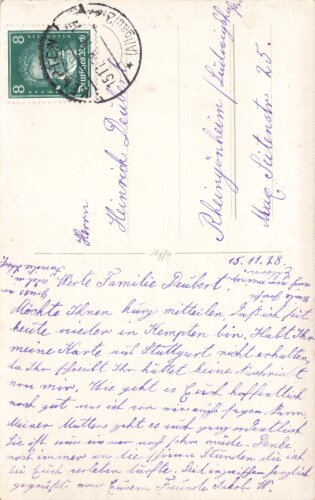 8 BEETHOVEN 8
Deutsches Reich
(Allgäu)
15.11.28
Herrn
Heinrich Deubert
Rheingönheim/Ludwigshaf.
Max Seitenstr 25.
15.11.28.
Werte Familie Deubert!
Möchte Ihnen kurz mitteilen, daß ich seit
heute wieder in Kempten bin. Habt Ihr
meine Karte aus Stuttgart nicht erhalten,
da Ihr schreibt Ihr hättet keine Nachricht
von mir. Wie geht es Euch hoffentlich
noch gut was ich von mir auch sagen kann.
Meiner Mutter geht es auch ganz ordentlich
Sie ist nur immer noch sehr müde. Denke
noch immer an die schönen Stunden die ich
bei Euch verleben durfte. Seid inzwischen herzlich
gegrüßt von Eurem Freunde Jakob W.